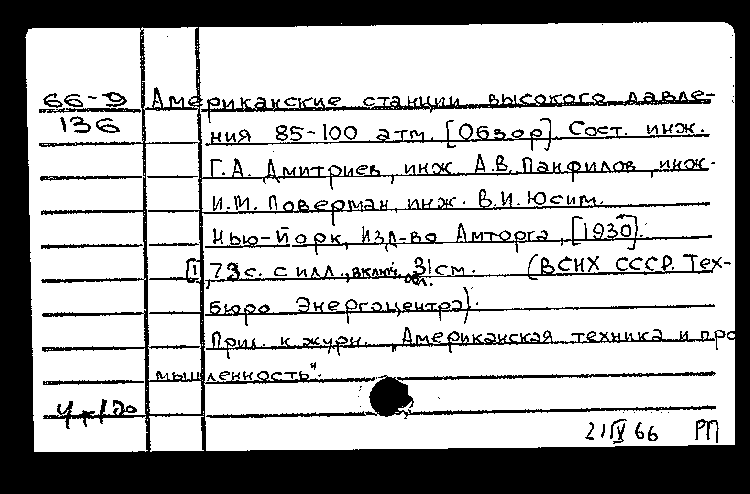 66-9 Американские станции высокого давле-
136 ния 85-100 атм. [Обзор]. Сост. инж.
Г.А. Дмитриев, инж. А.В. Панфилов, инж.
И.М. Поверман, инж. В.И. Юсим.
Нью-Йорк, Изд-во Амторга, [1930].
[1], 73 с. с илл., включ. обл. 31 см. (ВСНХ СССР. Тех-
бюро Энергоцентра).
Прил. к журн. „Американская техника и про
мышленность".
21 IV 66 РП